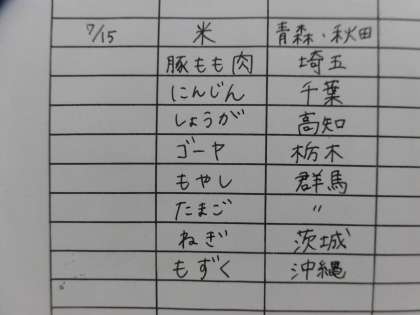 7/15 米 青森、秋田
豚もも肉 埼玉
にんじん 千葉
しょうが 高知
ゴーヤ 栃木
もやし 群馬
たまご 〃
ねぎ 茨城
もずく 沖縄